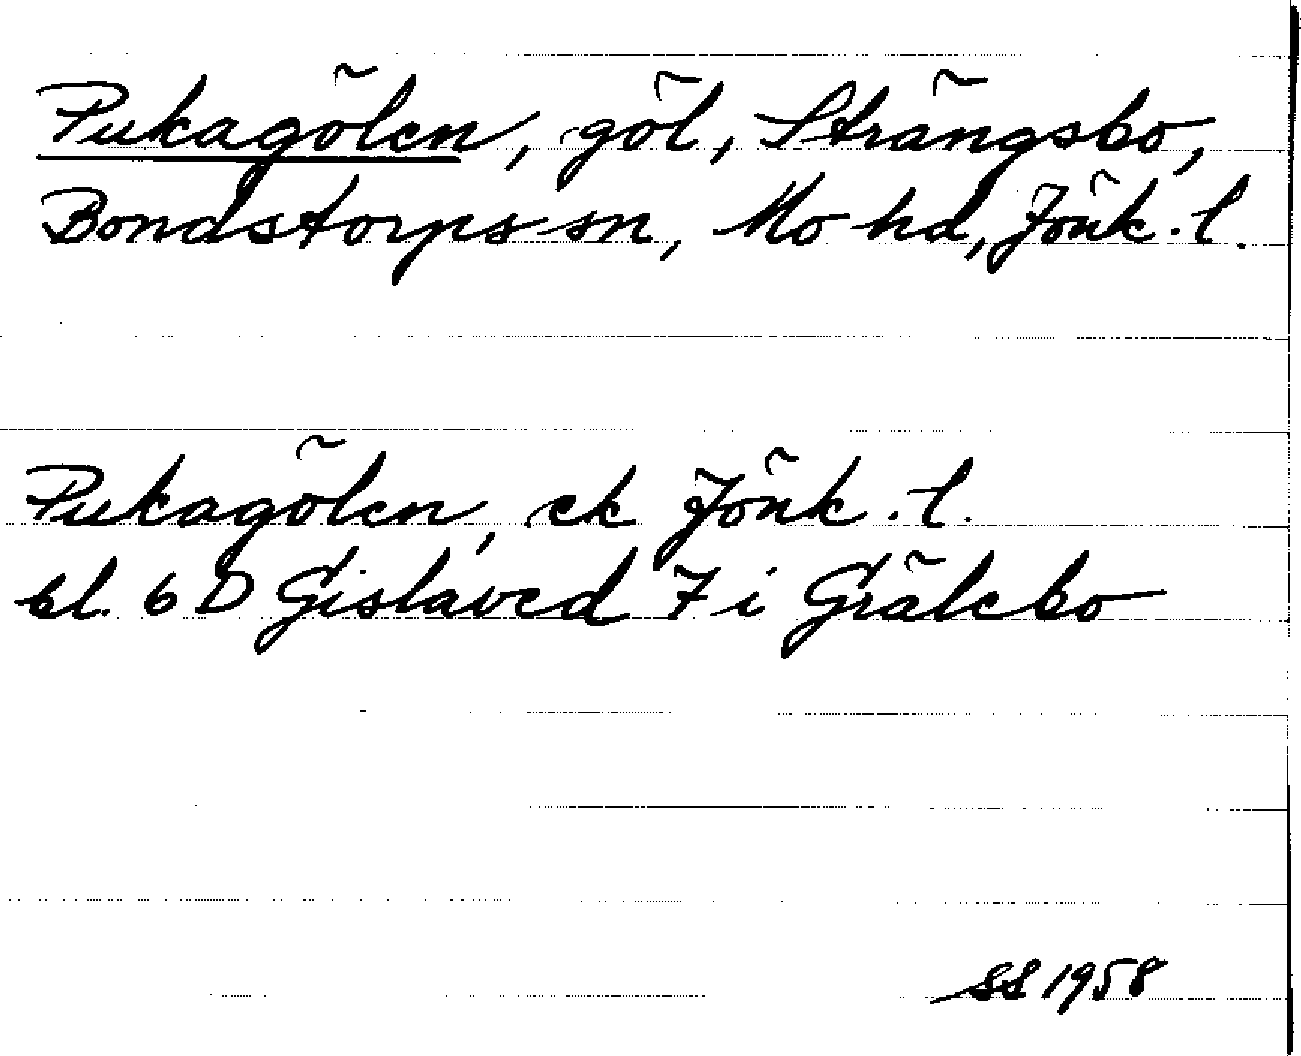 Pukagölen, göl, Strängsbo,
Bondstorps sn, Mo hd, Jönk. l.
Pukagölen, ek Jönk. l.
bl. 6 D Gislaved 7 i Grälebo
SS 1958